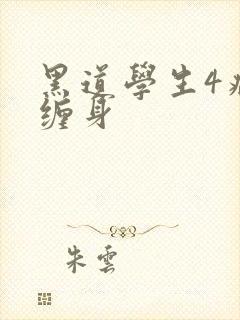 黑道學生4
缠身
朱雲